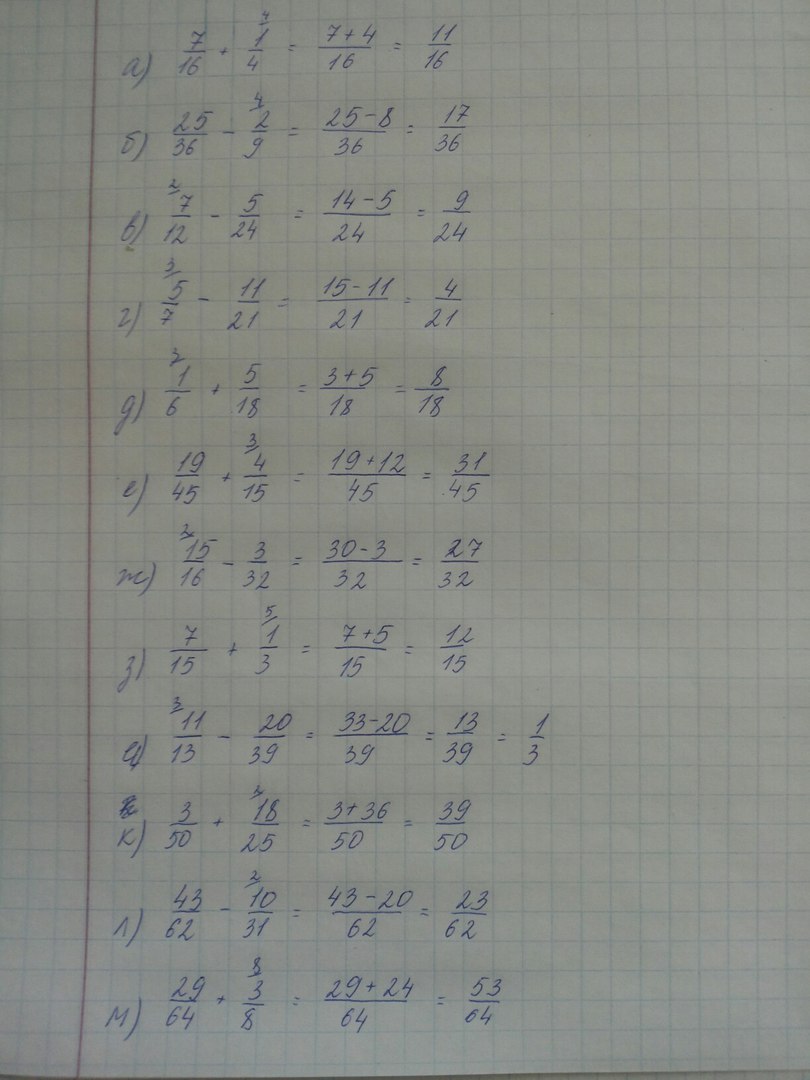 а) 7/16 + 1/4 ⁴ = (7+4)/16 = 11/16
б) 25/36 − 2/9 ⁴ = (25−8)/36 = 17/36
в) 7/12 ² − 5/24 = (14−5)/24 = 9/24
г) 5/7 ³ − 11/21 = (15−11)/21 = 4/21
д) 1/6 ³ + 5/18 = (3+5)/18 = 8/18
е) 19/45 + 4/15 ³ = (19+12)/45 = 31/45
ж) 15/16 ² − 3/32 = (30−3)/32 = 27/32
з) 7/15 + 1/3 ⁵ = (7+5)/15 = 12/15
и) 11/13 ³ − 20/39 = (33−20)/39 = 13/39 = 1/3
к) 3/50 + 18/25 ² = (3+36)/50 = 39/50
л) 43/62 − 10/31 ² = (43−20)/62 = 23/62
м) 29/64 + 3/8 ⁸ = (29+24)/64 = 53/64